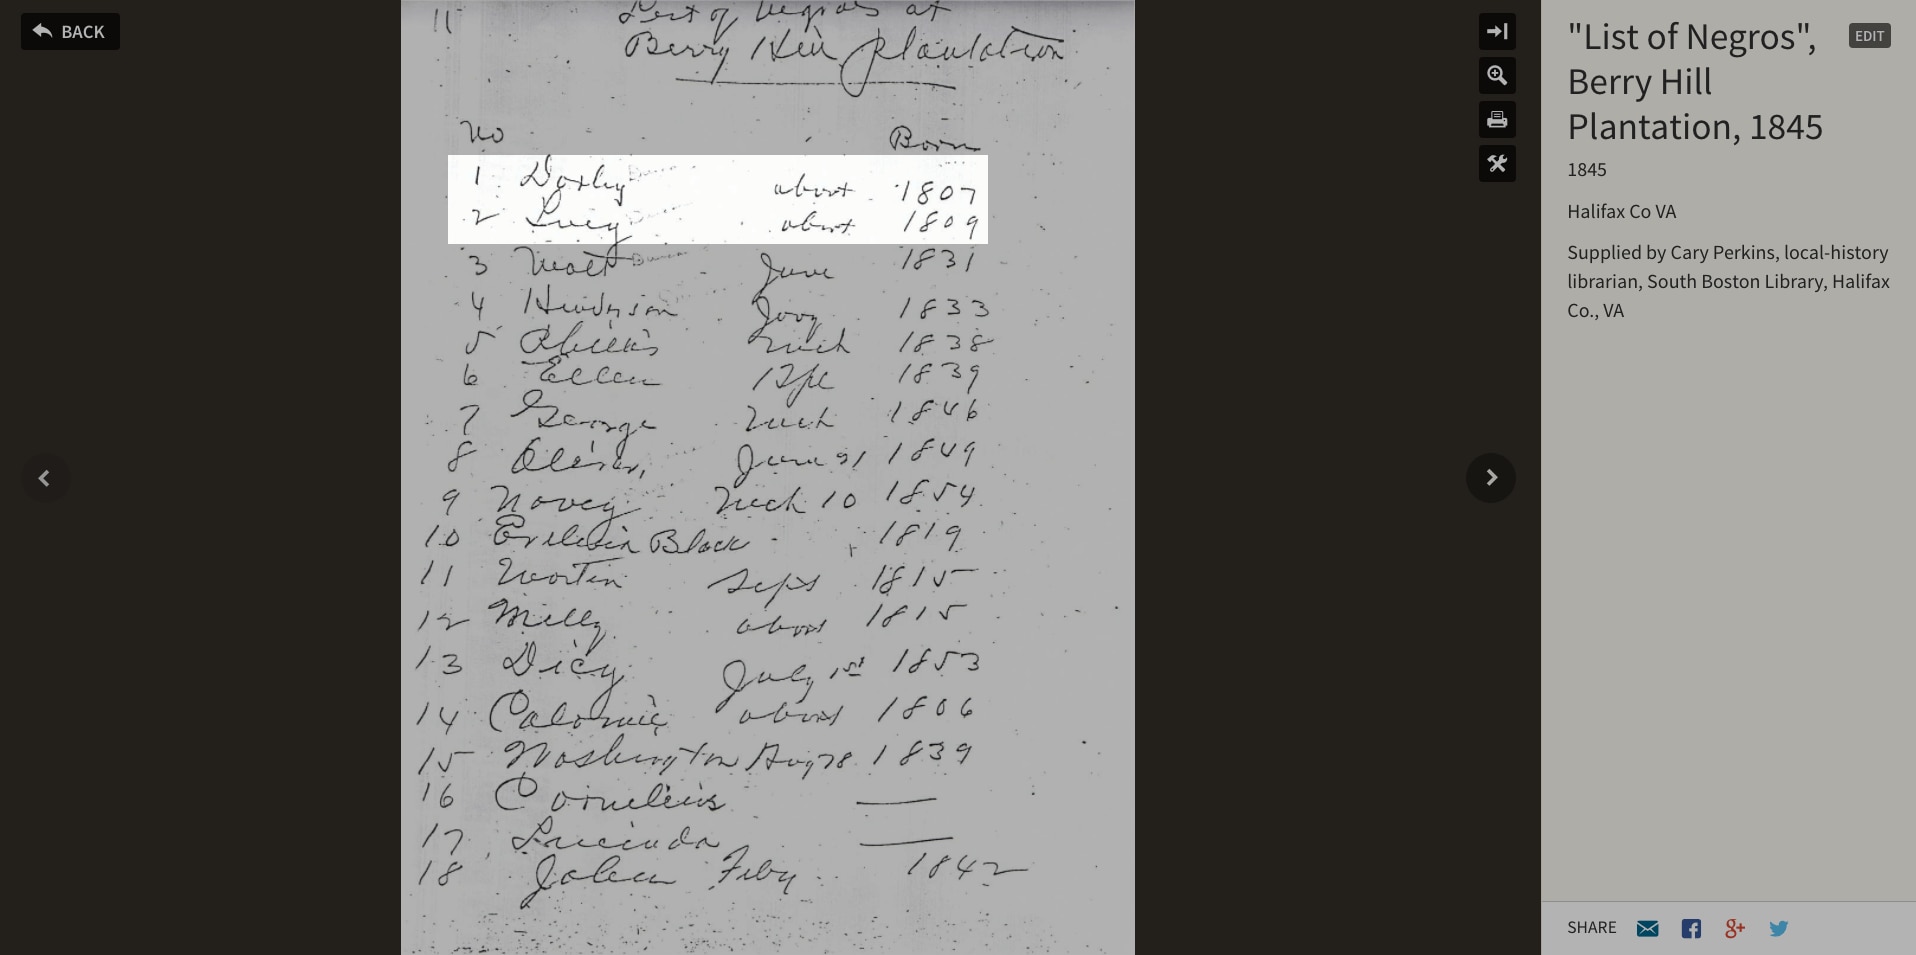 BACK
11
List of Negros at
Berry Hill Plantation
No Born
1 Darby about 1807
2 Lucy about 1809
3 Matt June 1831
4 Henderson 1833
5 Phillis Mch 1838
6 Ellen Apl 1839
7 George Mch 1846
8 Oliver, June 21 1849
9 Novey Mch 10 1854
10 Black 1819
11 Martin Sept 1815
12 Milly about 1815
13 Dicy July 1st 1853
14 about 1806
15 Washington Aug 28 1839
16 Cornelius
17 Lucinda
18 Feby 1842
"List of Negros",
Berry Hill
Plantation, 1845
EDIT
1845
Halifax Co VA
Supplied by Cary Perkins, local-history
librarian, South Boston Library, Halifax
Co., VA
SHARE